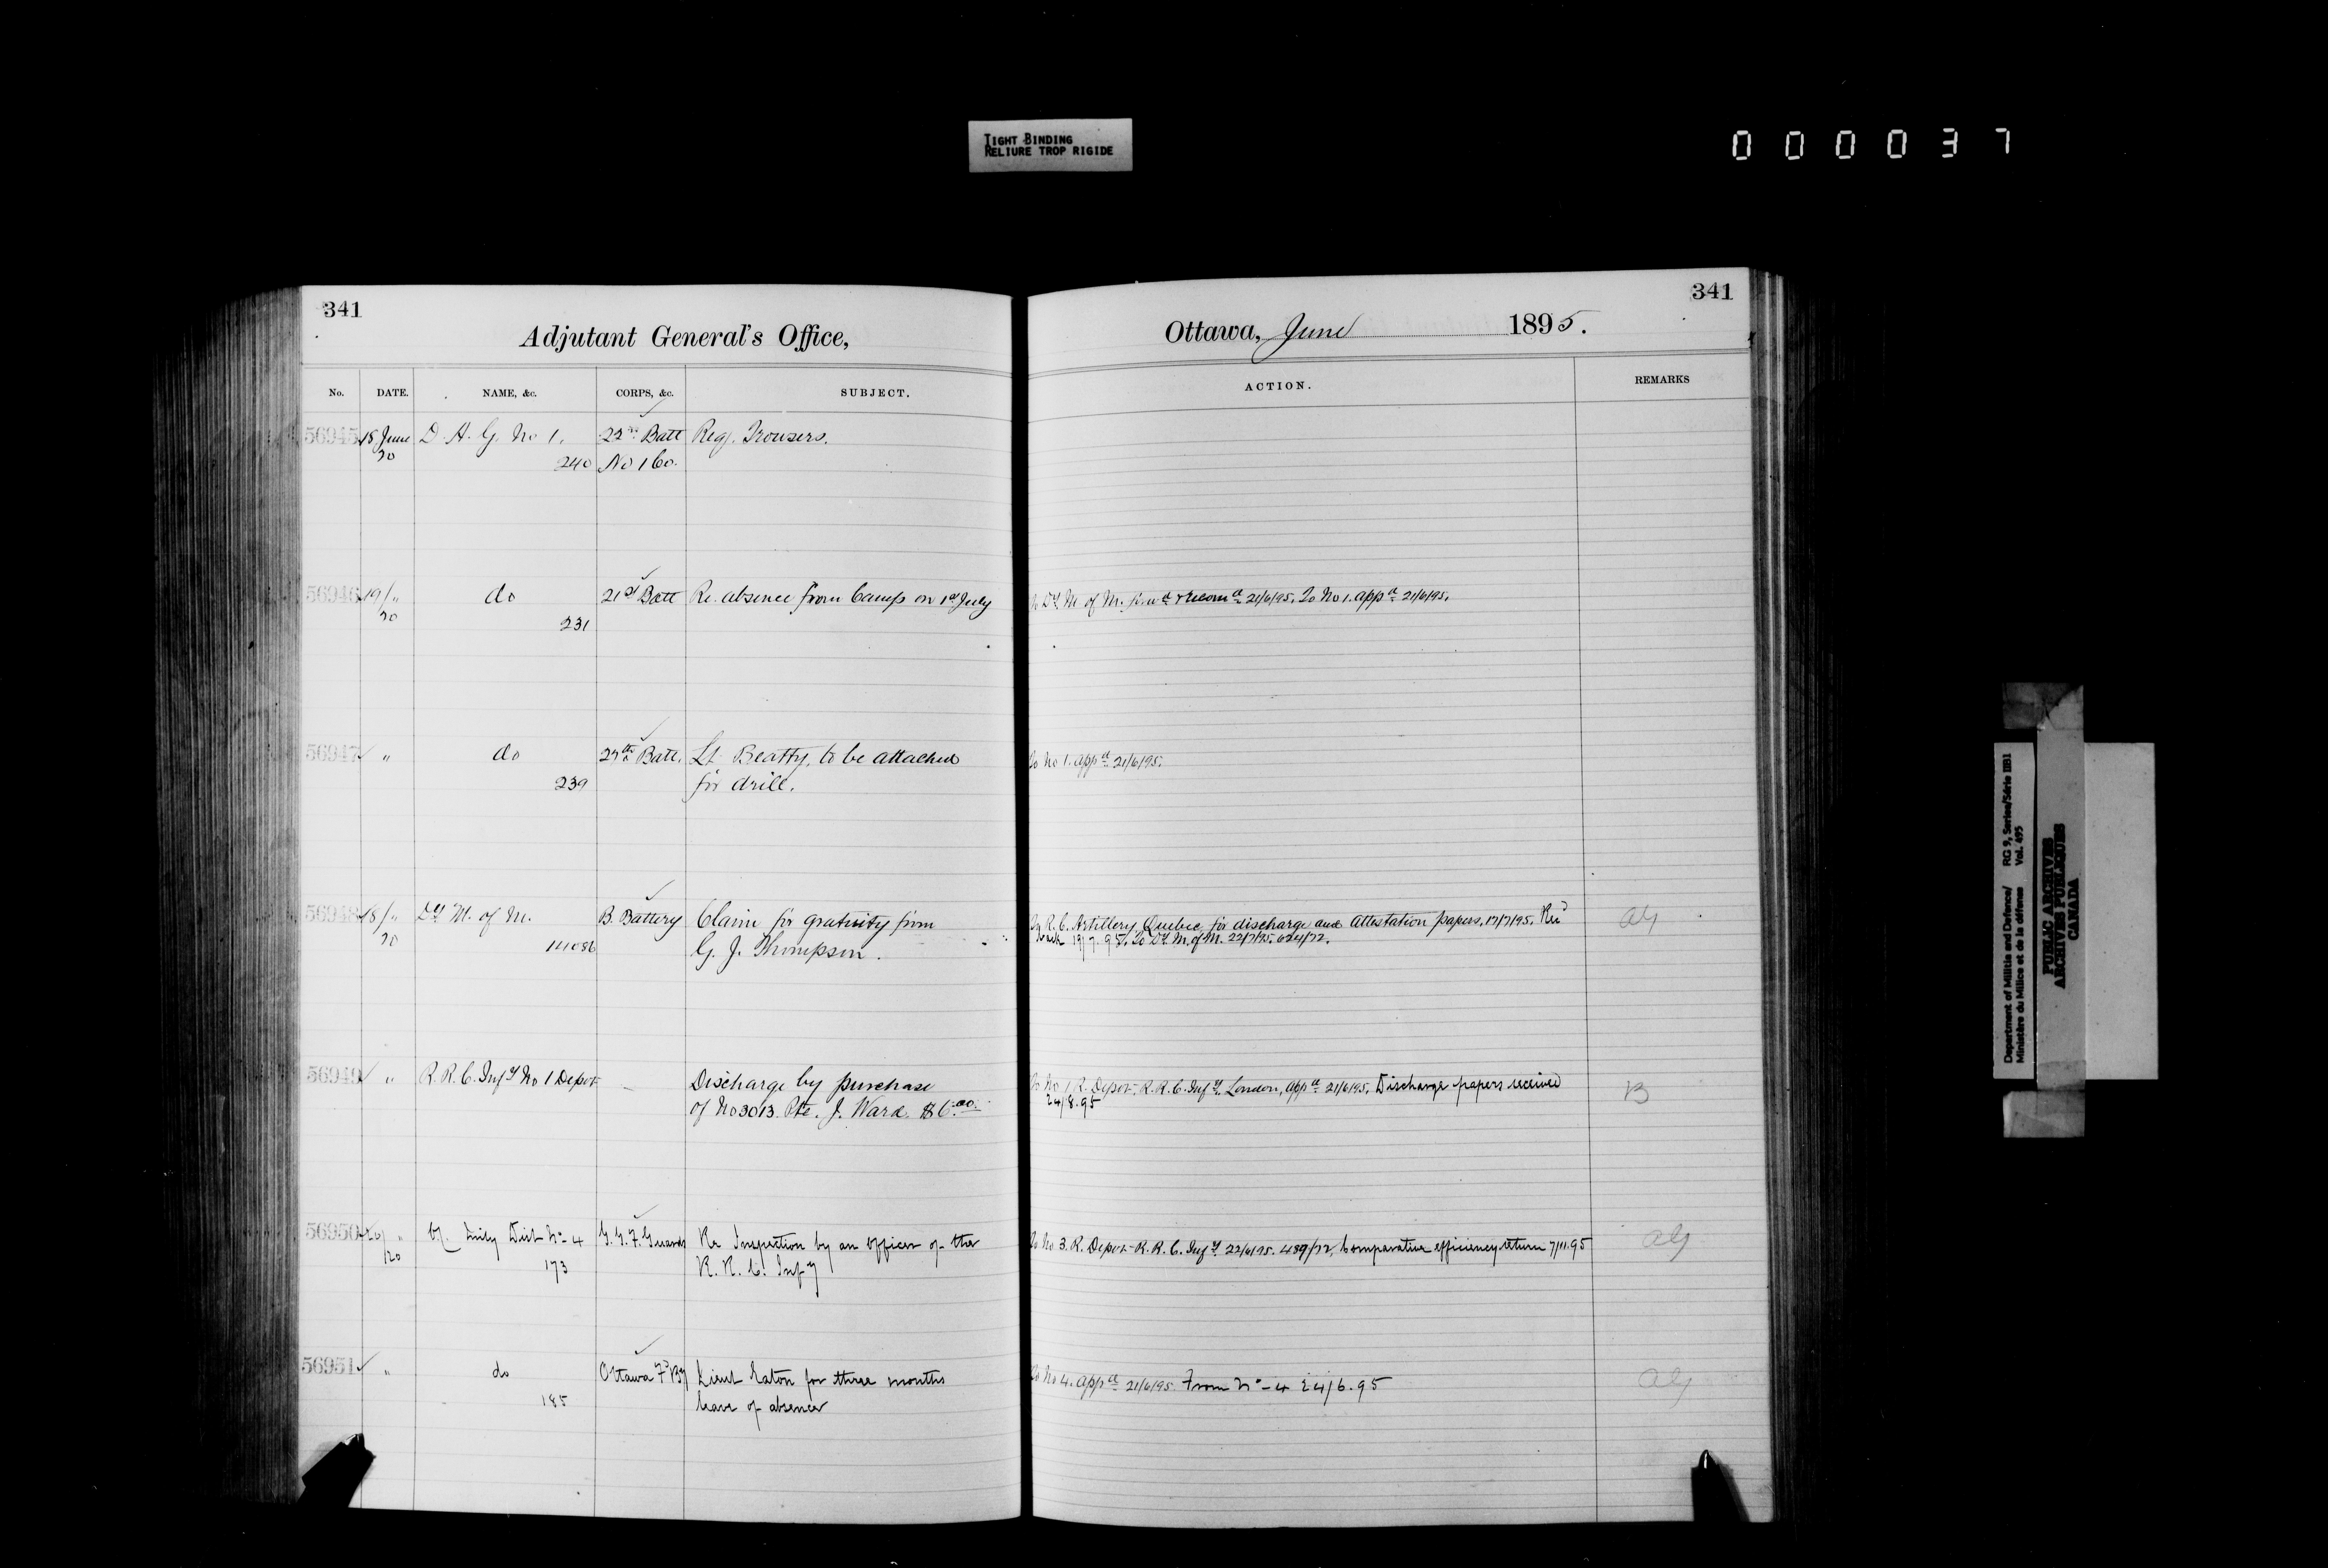 TIGHT BINDING
RELIURE TROP RIGIDE
000037
341
Adjutant General's Office,
No. DATE. NAME, &c. CORPS, &c. SUBJECT.
56945 18 June D. A. G. No 1. 22nd Batt Req. Trousers.
20 240 No 1 Co.
56946 19/" do 21st Batt Re. absence from Camp on 1st July
20 231
56947 " do 27th Batt. Lt Beatty, to be attached
239 for drill.
56948 18/" Dy M. of M. B. Battery Claim for gratuity from
20 G. J. Thompson.
56949 " R. R. C. Infy No 1 Depot Discharge by purchase
of No 3013. Pte. J. Ward. $6.00.
56950 " Dist No 4 G. G. F. Guards Re Inspection by an officer of the
/20 173 R. R. C. Infy
56951 " do Ottawa Fd By Lieut Eaton for three months
185 leave of absence
341
Ottawa, June 1895.
ACTION. REMARKS
To Dy M. of M. & recomd 21/6/95. To No 1. appd 21/6/95.
To No 1. appd 21/6/95.
To R. C. Artillery, Quebec for discharge and attestation papers, 17/7/95. Recd
back 19/7.95. To Dy. M. of M. 22/7/95. 624/72.
To No 1 R. Depot R. R. C. Infy London, appd 21/6/95. Discharge papers received B
24/8.95
To No 3. R. Depot R. R. C. Infy 22/6/95. 489/72. Comparative efficiency return 7/11.95
To No 4. appd 21/6/95 From No 4 24/6.95
Department of Militia and Defence/ RG 9, Series/Série IIB1
Ministère du Milice et de la défense Vol. 495
PUBLIC ARCHIVES
ARCHIVES PUBLIQUES
CANADA